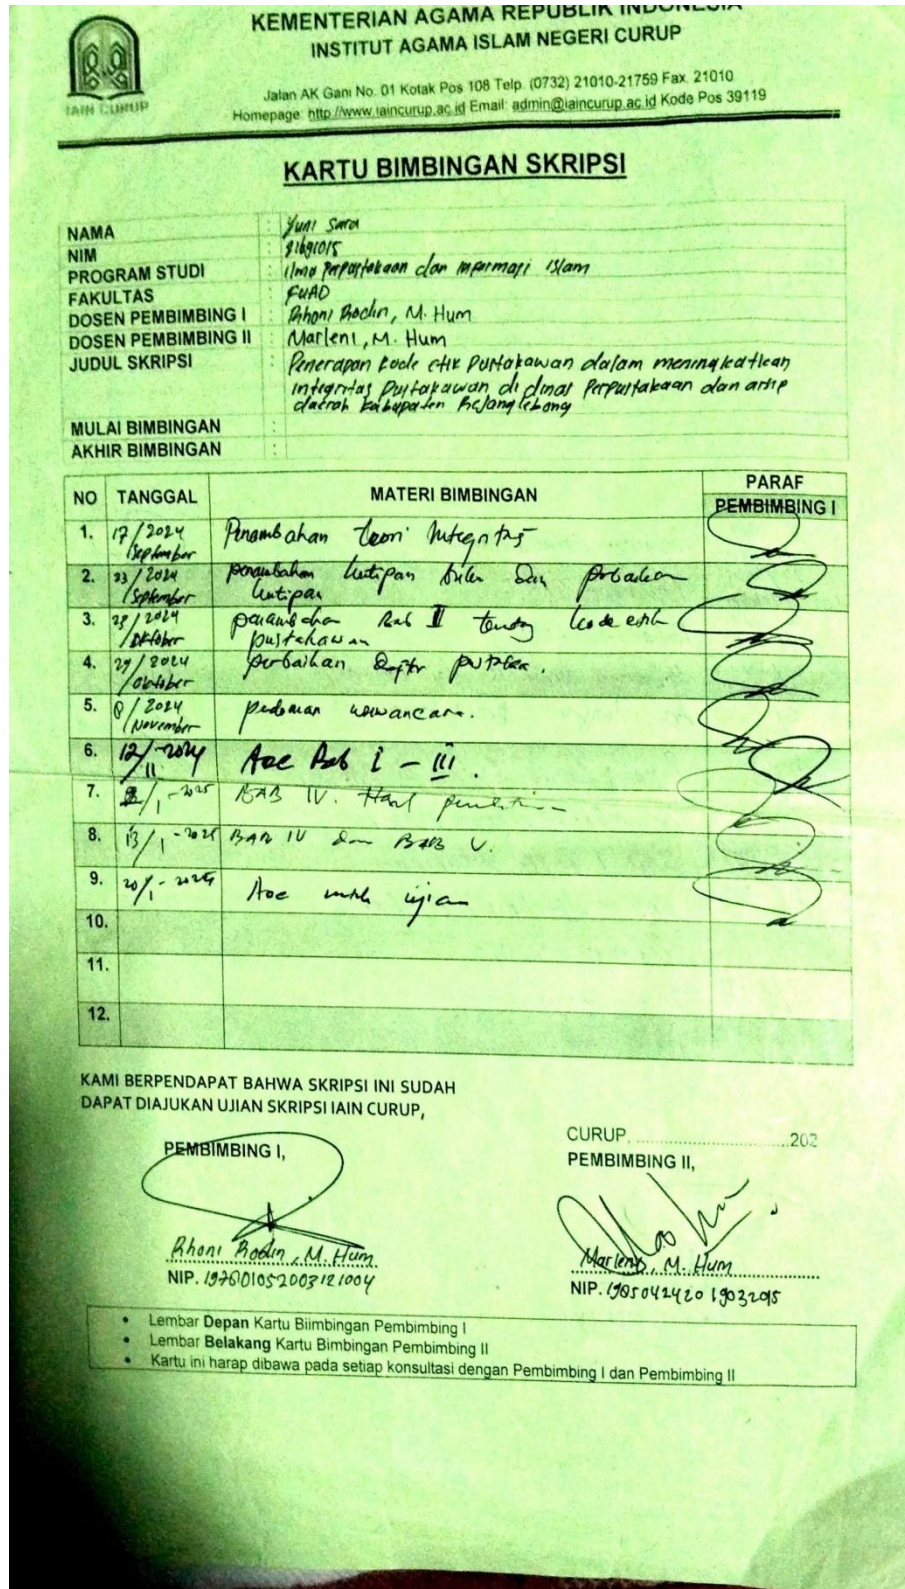 KEMENTERIAN AGAMA REPUBLIK INDONESIA
INSTITUT AGAMA ISLAM NEGERI CURUP
Jalan AK Gani No. 01 Kotak Pos 108 Telp. (0732) 21010-21759 Fax. 21010
Homepage: http://www.iaincurup.ac.id Email: admin@iaincurup.ac.id Kode Pos 39119
IAIN CURUP
KARTU BIMBINGAN SKRIPSI
NAMA : Yuni Sara
NIM : 21691015
PROGRAM STUDI : Ilmu Perpustakaan dan Informasi Islam
FAKULTAS : FUAD
DOSEN PEMBIMBING I : Rhoni Rodin, M. Hum
DOSEN PEMBIMBING II : Marleni, M. Hum
JUDUL SKRIPSI : Penerapan kode etik Pustakawan dalam meningkatkan
integritas Pustakawan di dinas Perpustakaan dan arsip
daerah kabupaten Rejang lebong
MULAI BIMBINGAN :
AKHIR BIMBINGAN :
NO TANGGAL MATERI BIMBINGAN PARAF
PEMBIMBING I
1. 17/2024 /September Penambahan teori Integritas
2. 23/2024 /September penambahan kutipan buku dan perbaikan
kutipan
3. /2024 /Oktober penambahan Bab II tentang kode etik
pustakawan
4. 29/2024 /Oktober perbaikan daftar pustaka.
5. 8/2024 /November pedoman wawancara.
6. 12/11-2024 Acc Bab I - III.
7. /1-2025 BAB IV. Hasil penelitian
8. 13/1-2025 BAB IV dan BAB V.
9. 20/1-2025 Acc untuk ujian
10.
11.
12.
KAMI BERPENDAPAT BAHWA SKRIPSI INI SUDAH
DAPAT DIAJUKAN UJIAN SKRIPSI IAIN CURUP,
CURUP, ..............................202
PEMBIMBING I, PEMBIMBING II,
Rhoni Rodin, M. Hum Marleni, M. Hum
NIP. 197601052003121004 NIP. 198504242019032015
• Lembar Depan Kartu Biimbingan Pembimbing I
• Lembar Belakang Kartu Bimbingan Pembimbing II
• Kartu ini harap dibawa pada setiap konsultasi dengan Pembimbing I dan Pembimbing II